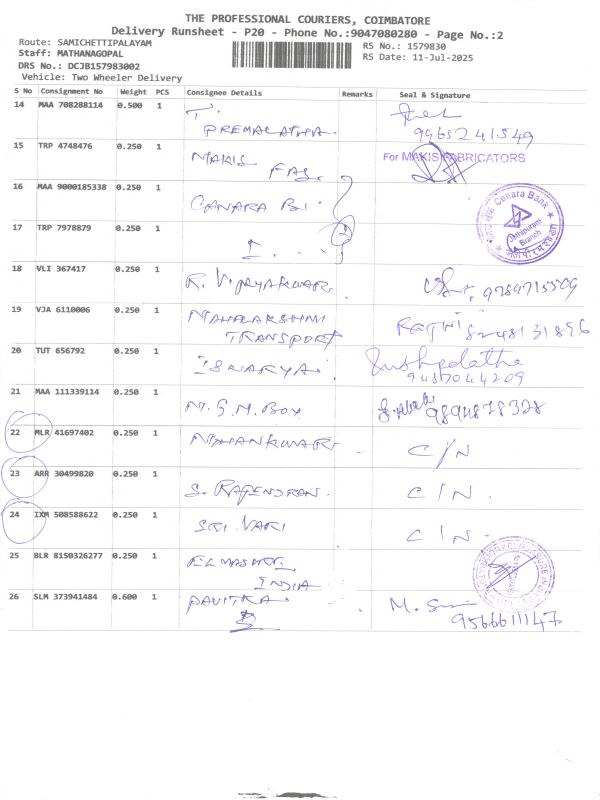 THE PROFESSIONAL COURIERS, COIMBATORE
Delivery Runsheet - P20 - Phone No.:9047080280 - Page No.:2
Route: SAMICHETTIPALAYAM
RS No.: 1579830
Staff: MATHANAGOPAL
RS Date: 11-Jul-2025
DRS No.: DCJB157983002
Vehicle: Two Wheeler Delivery
S No Consignment No Weight PCS Consignee Details Remarks Seal & Signature
14 MAA 708288114 0.500 1 T. PREMALATHA. 9965241549
15 TRP 4748476 0.250 1 MAKIS FAB. For MAKIS FABRICATORS
16 MAA 9000185338 0.250 1 CANARA B. Canara Bank Branch
17 TRP 7978879 0.250 1
18 VLI 367417 0.250 1 R. VIJAYAKUMAR. 9789715509
19 VJA 6110006 0.250 1 MAHALAKSHMI TRANSPORT 8248131896
20 TUT 656792 0.250 1 ISWARYA. Pushpalatha 9487044209
21 MAA 111339114 0.250 1 M.S.M. BOY 9894878328
22 MLR 41697402 0.250 1 C/N
23 ARR 30499820 0.250 1 S. RAJENDRAN. C/N.
24 IXM 508588622 0.250 1 SRI HARI C/N.
25 BLR 8150326277 0.250 1 INDIA
26 SLM 373941484 0.600 1 PAVITRA. 9566611147